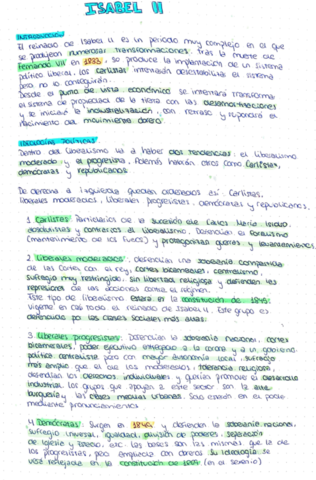 ISABEL II
INTRODUCCIÓN
El reinado de Isabel II es un periodo muy complejo en el que
se producen numerosas transformaciones. Tras la muerte de
Fernando VII en 1833, se produce la implantación de un sistema
político liberal, los carlistas intentarán desestabilizar el sistema
pero no lo conseguirán.
Desde el punto de vista económico se intentará transformar
el sistema de propiedad de la tierra con las desamortizaciones
y se iniciará la industrialización, con retraso y supondrá el
nacimiento del movimiento obrero.
IDEOLOGÍAS POLÍTICAS
Dentro del liberalismo va a haber dos tendencias: el liberalismo
moderado y el progresista. Además habrán otros como carlistas,
demócratas y republicanos.
De derecha a izquierda quedan ordenados así: Carlistas,
liberales moderados, liberales progresistas, demócratas y republicanos.
1. Carlistas: Partidarios de la sucesión de Carlos María Isidro,
absolutistas y contrarios al liberalismo. Defienden el foralismo
(mantenimiento de los fueros) y protagonizan guerras y levantamientos.
2. Liberales moderados: defendían una soberanía compartida
de las Cortes con el rey, Cortes bicamerales, centralismo,
sufragio muy restringido, sin libertad religiosa y defienden las
represiones de las acciones contra el régimen.
Este tipo de liberalismo estará en la constitución de 1845
vigente en casi todo el reinado de Isabel II. Este grupo es
defendido por las clases sociales más altas.
3. Liberales progresistas: defendían la soberanía nacional, cortes
bicamerales, poder ejecutivo entregado a la corona y a un gobierno,
política centralista pero con mayor autonomía local, sufragio
más amplio que el de los moderados, tolerancia religiosa,
defendían los derechos individuales y querían promover el desarrollo
industrial. Los grupos que apoyan a este sector son la alta
burguesía y las clases medias urbanas. Solo estarán en el poder
mediante pronunciamientos.
4. Demócratas: Surgen en 1849 y defienden la soberanía nacional,
sufragio universal, igualdad, división de poderes, separación
de Iglesia y Estado, etc. Las bases son las mismas que la de
los progresistas, pero empieza con obreros. Su ideología se
verá reflejada en la constitución de (en el sexenio)